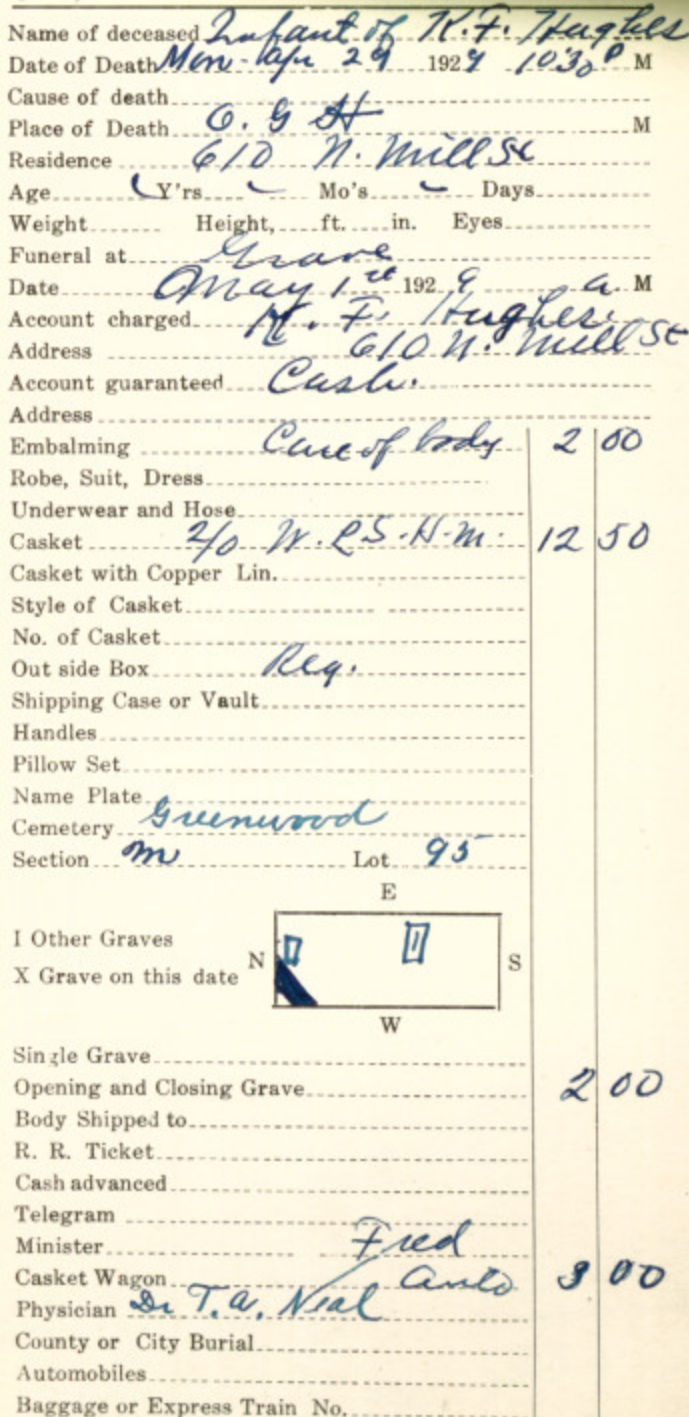 Name of deceased Infant of K. F. Hughes
Date of Death Mon - Apr 29 1929 10:30 P M
Cause of death
Place of Death O. G H M
Residence 610 N. Mill St
Age Y'rs Mo's Days
Weight Height, ft. in. Eyes
Funeral at Grave
Date May 1st 1929 a. M
Account charged K. F. Hughes.
Address 610 N. Mill St
Account guaranteed Cash.
Address
Embalming Care of body 2 00
Robe, Suit, Dress
Underwear and Hose
Casket 2/0 W. P S. H. M. 12 50
Casket with Copper Lin.
Style of Casket
No. of Casket
Out side Box Reg.
Shipping Case or Vault
Handles
Pillow Set
Name Plate
Cemetery Greenwood
Section M Lot 95
E
I Other Graves
N S
X Grave on this date
W
Single Grave
Opening and Closing Grave 2 00
Body Shipped to
R. R. Ticket
Cash advanced
Telegram
Minister Fred
Casket Wagon / Auto 3 00
Physician Dr T. A. Neal
County or City Burial
Automobiles
Baggage or Express Train No.